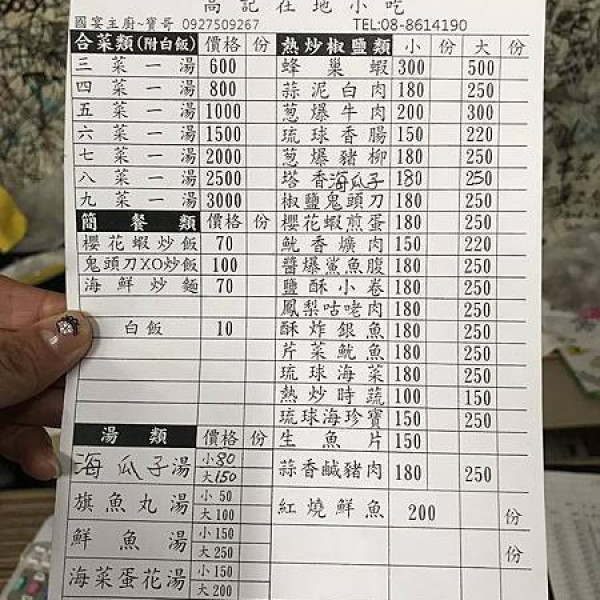 高記在地小吃
國宴主廚~寶哥 0927509267 TEL:08-8614190
合菜類(附白飯) 價格 份
三菜一湯 600
四菜一湯 800
五菜一湯 1000
六菜一湯 1500
七菜一湯 2000
八菜一湯 2500
九菜一湯 3000
簡餐類 價格 份
櫻花蝦炒飯 70
鬼頭刀XO炒飯 100
海鮮炒麵 70
白飯 10
湯類 價格 份
海瓜子湯 小80
大150
旗魚丸湯 小50
大100
鮮魚湯 小150
大250
海菜蛋花湯 小150
大200
熱炒椒鹽類 小 份 大 份
蜂巢蝦 300 500
蒜泥白肉 180 250
蔥爆牛肉 200 300
琉球香腸 150 220
蔥爆豬柳 180 250
塔香海瓜子 180 250
椒鹽鬼頭刀 180 250
櫻花蝦煎蛋 180 250
魷香爌肉 150 220
醬爆鯊魚腹 180 250
鹽酥小卷 180 250
鳳梨咕咾肉 180 250
酥炸銀魚 180 250
芹菜魷魚 180 250
琉球海菜 180 250
熱炒時蔬 100 150
琉球海珍寶 150 250
生魚片 150
蒜香鹹豬肉 180 250
紅燒鮮魚 200 份
份